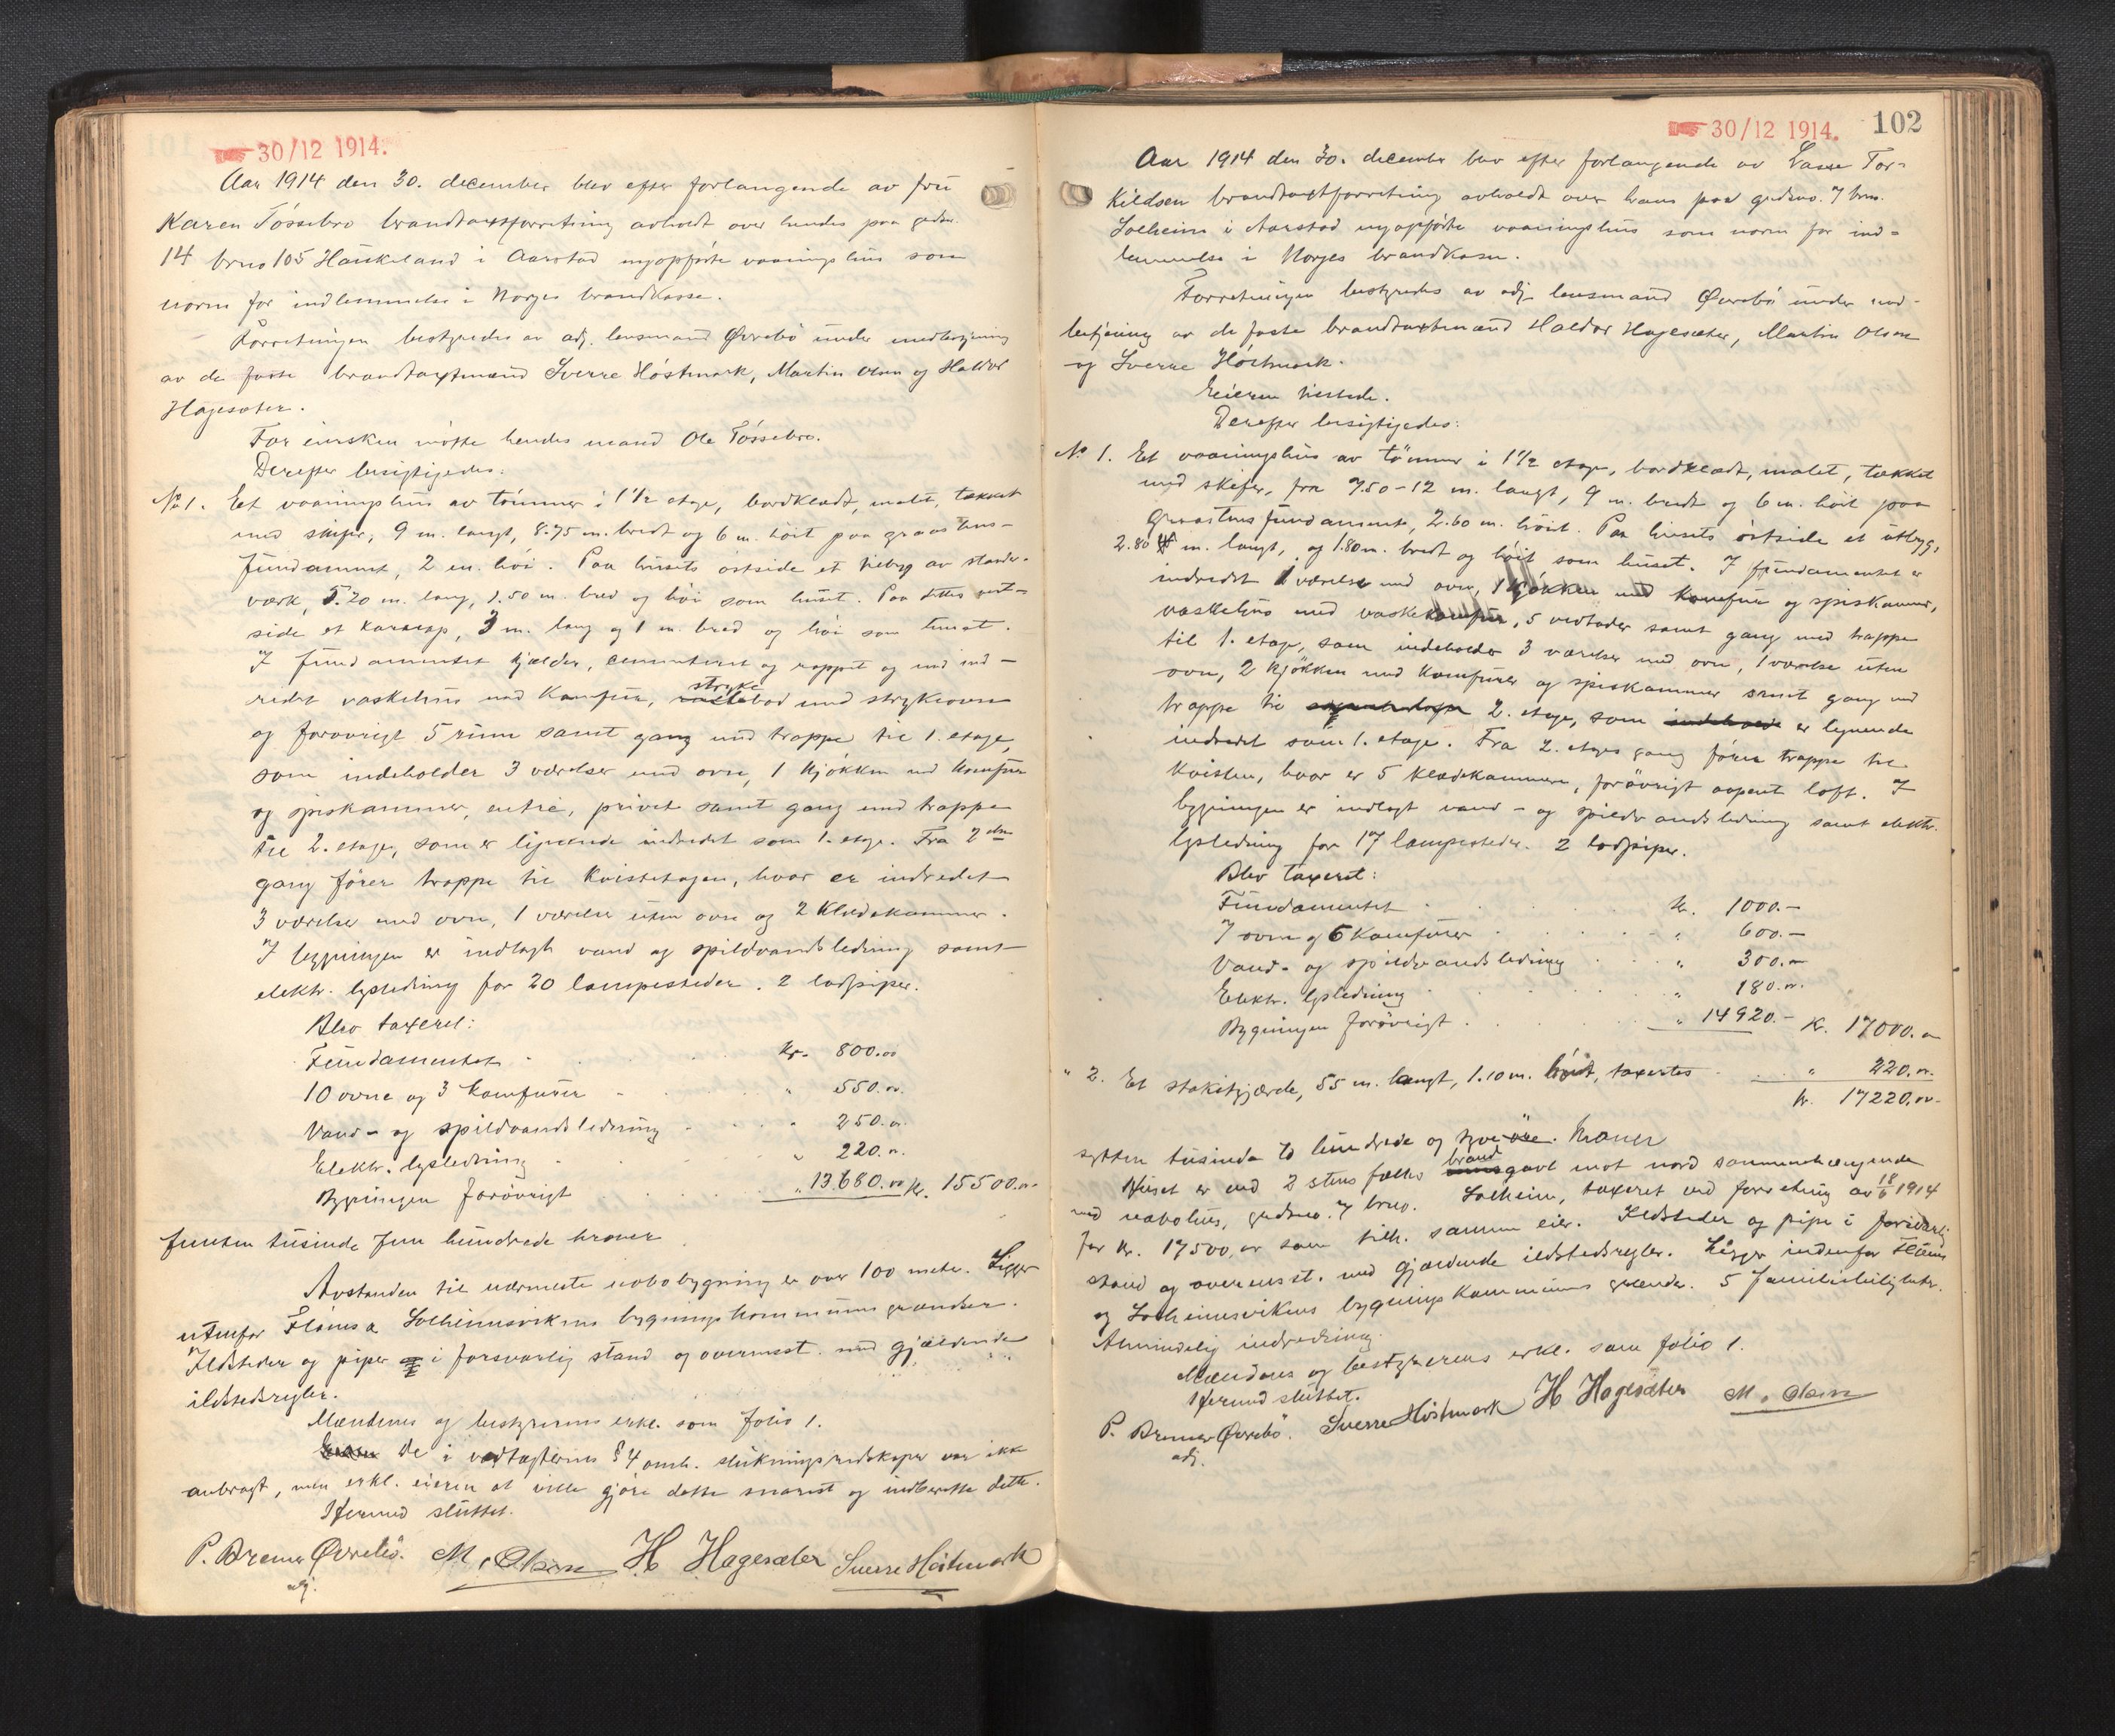 30/12 1914.
Aar 1914 den 30. december blev efter forlangende av fru
Karen Tössebro brandtaxtforretning avholdt over hendes paa gaardsno.
14 brno 105 Haukeland i Aarstad nyopførte vaaningshus som
norm for indlemmelse i Norges brandkasse.
Forretningen bestyredes av adj. lensmand Øvrebö under medbetjening
av de faste brandtaxtmænd Sverre Höstmark, Martin Olsen og Haldor
Hagesæter.
For eiersken mötte hendes mand Ole Tössebro.
Derefter besigtigedes:
No 1. Et vaaningshus av tömmer i 1 1/2 etage, bordklædt, malet, tækket
med skifer, 9 m. langt, 8.75 m. bredt og 6 m. höit paa graastens-
fundament, 2 m. höi. Paa husets östside et tilbyg av stander-
værk, 5.20 m. lang, 1.50 m. bred og höi som huset. Paa dettes vest-
side et karnap, 3 m. lang og 1 m. bred og höi som huset.
I fundamentet kjælder, cementeret og rappet og med ind-
redet vaskehus med komfur, strykebod med strykeovn
og forövrigt 5 rum samt gang med trappe til 1. etage,
som indeholder 3 værelser med ovn, 1 kjökken med komfur
og spiskammer, entré, privet samt gang med trappe
til 2. etage, som er lignende indredet som 1. etage. Fra 2den
gang förer trappe til kvistetagen, hvor er indredet
3 værelser med ovn, 1 værelse uten ovn og 2 klædekammer.
I bygningen er indlagt vand og spildvandsledning samt
elektr. lysledning for 20 lampesteder. 2 lodpiper.
Blev taxeret:
Fundamentet kr. 800.00
10 ovne og 3 komfurer " 550.00
Vand- og spildvandsledning " 250.00
Elektr. lysledning " 220.00
Bygningen forövrigt " 13.680.00 kr. 15500.00
femten tusinde fem hundrede kroner
Avstanden til nærmeste nabobygning er over 100 meter. Ligger
utenfor Flöens & Solheimsvikens bygningskommunes grændser.
Ildsteder og piper i forsvarlig stand og overensst. med gjældende
ildstedsregler.
Mændenes og bestyrerens erkl. som folio 1.
De i vedtægternes § 4 omh. slukningsredskaper var ikke
anbragt, men erkl. eieren at ville gjöre dette snarest og indberette dette.
Hermed sluttet.
P. Bremer Øvrebö. M. Olsen H Hagesæter Sverre Höstmark
adj.
30/12 1914. 102
Aar 1914 den 30. december blev efter forlangende av Lasse Tor-
kildsen brandtaxtforretning avholdt over hans paa gardsno. 7 brno.
Solheim i Aarstad nyopförte vaaningshus som norm for ind-
lemmelse i Norges brandkasse.
Forretningen bestyredes av adj. lensmand Øvrebö under med-
betjening av de faste brandtaxtmænd Haldor Hagesæter, Martin Olsen
og Sverre Höstmark.
Eieren tilstede.
Derefter besigtigedes:
No 1. Et vaaningshus av tömmer i 1 1/2 etage, bordklædt, malet, tækket
med skifer, fra 9.50-12 m. langt, 9 m. bredt og 6 m. höit paa
graastensfundament, 2.60 m. höit. Paa husets östside et utbyg,
2.80 m. langt, og 1.80 m. bredt og höit som huset. I fundamentet er
indredet 1 værelse med ovn, 1 kjökken med komfur og spiskammer,
vaskehus med vaskekomfur, 5 vedboder samt gang med trappe
til 1. etage, som indeholder 3 værelser med ovn, 1 værelse uten
ovn, 2 kjökken med komfurer og spiskammer samt gang med
trappe til 2. etage, som er lignende
indredet som 1. etage. Fra 2. etages gang förer trappe til
kvisten, hvor er 5 klædekammere, forövrigt aapent loft. I
bygningen er indlagt vand- og spildvandsledning samt elektr.
lysledning for 17 lampesteder. 2 lodpiper.
Blev taxeret:
Fundamentet kr. 1000.-
7 ovne og 6 komfurer " 600.-
Vand- og spildvandsledning " 300.-
Elektr. lysledning " 180.00.
Bygningen forövrigt " 14920.- kr. 17000.00
" 2. Et stakitgjærde, 55 m. langt, 1.10 m. höit, taxertes " 220.00.
kr. 17220.00.
sytten tusinde to hundrede og tyve öre. kroner
Huset er ved 2 stens fælles brandgavl mot nord sammenhængende
med nabohus, gardsno. 7 brno. Solheim, taxeret ved forretning av 18/6 1914
for kr. 17500.00 som tilh. samme eier. Ildsteder og pipe i forsvarlig
stand og overensst. med gjældende ildstedsregler. Ligger indenfor Flöens
og Solheimsvikens bygningskommunes grænder. 5 familieleiligheter.
Almindelig indredning.
Mændenes og bestyrerens erkl. som folio 1.
Hermed sluttet.
P. Bremer Øvrebö. Sverre Höstmark H Hagesæter M. Olsen
adj.